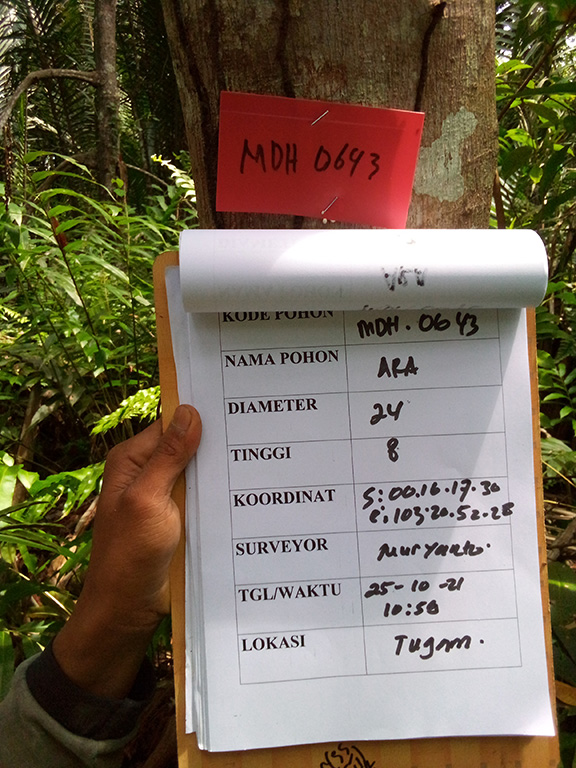 MDH 0643
KODE POHON MDH. 0643
NAMA POHON ARA
DIAMETER 24
TINGGI 8
KOORDINAT S: 00.16.17.30
E: 103.20.52.28
SURVEYOR Muryanto.
TGL/WAKTU 25-10-21
10:50
LOKASI